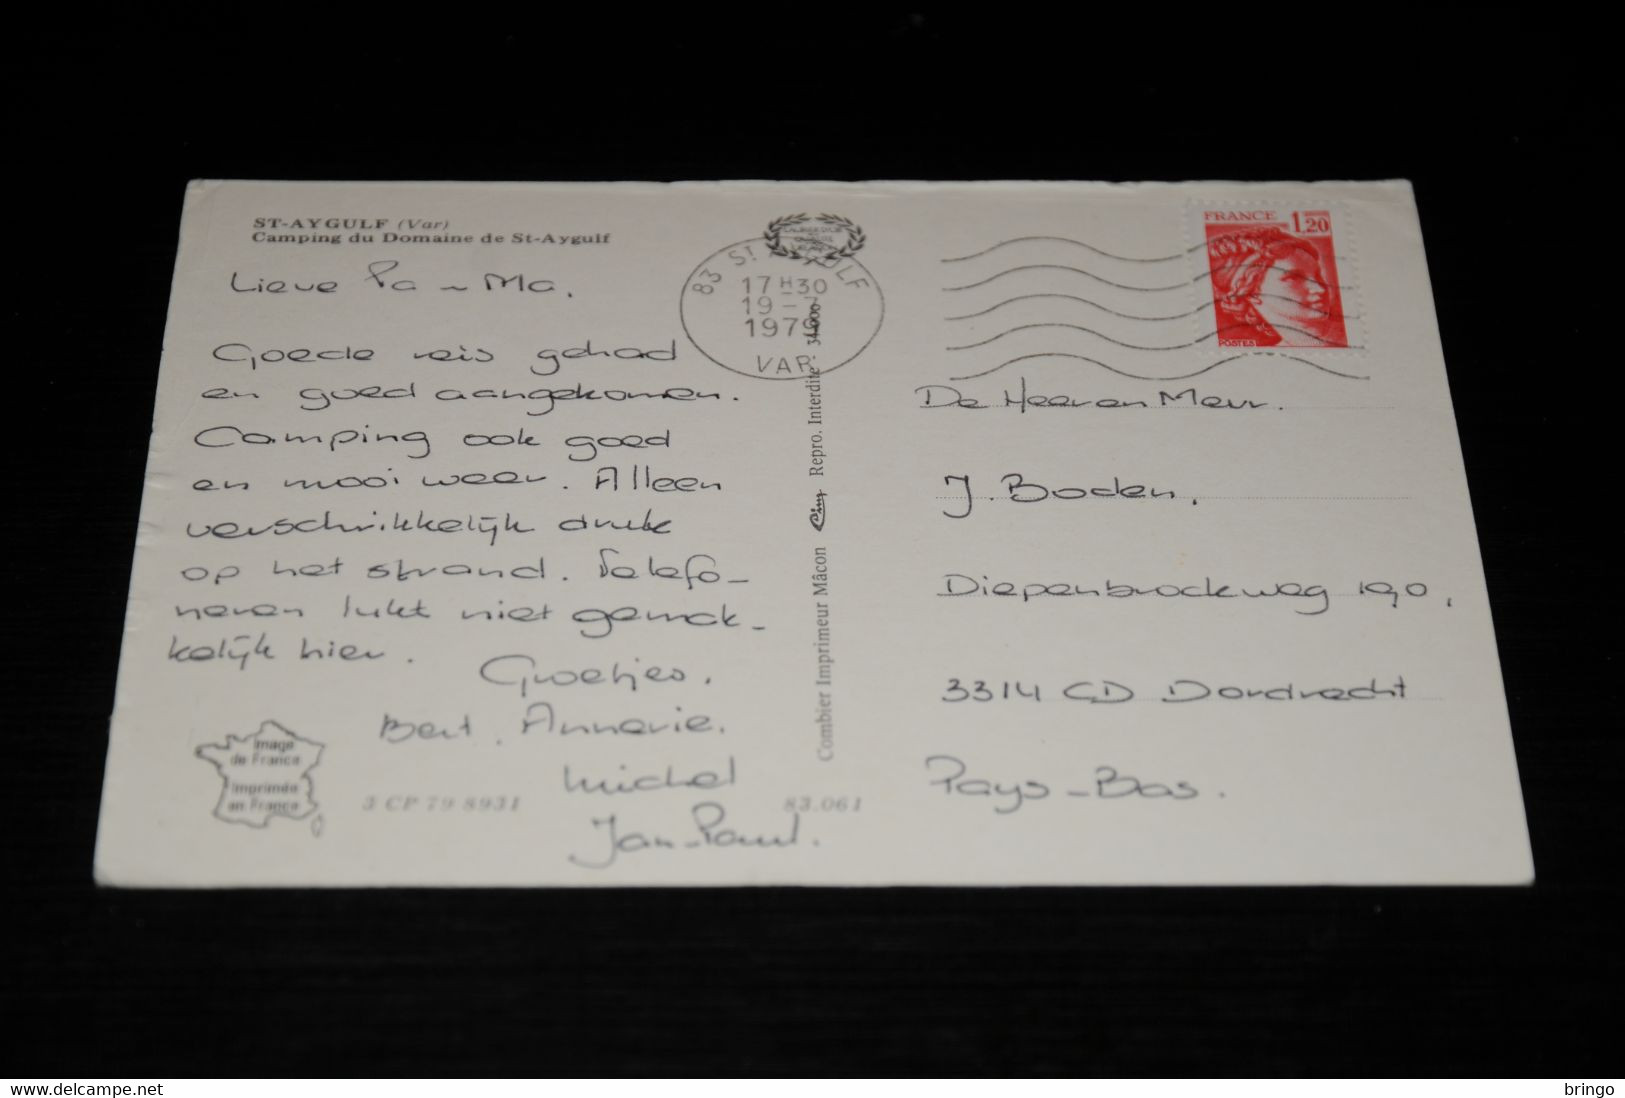 ST-AYGULF (Var)
Camping du Domaine de St-Aygulf
Lieve Pa ~ Ma.
Goede reis gehad
en goed aangekomen.
Camping ook goed
en mooi weer. Alleen
verschrikkelijk druk
op het strand. Telefo-
neren lukt niet gemak-
kelijk hier.
Groetjes.
Bert. Annerie.
Michel
Jan-Paul.
Image
de France
Imprimée
en France
3 CP 79 8931
83.061
Combier Imprimeur Mâcon Cim Repro. Interdite . 34.000
83 ST GULF
17 H 30
19 - 7
1979
VAR
FRANCE 1,20
POSTES
De Heer en Mevr.
J. Boden.
Diepenbrockweg 190,
3314 CD Dordrecht
Pays-Bas.
www.delcampe.net
bringo